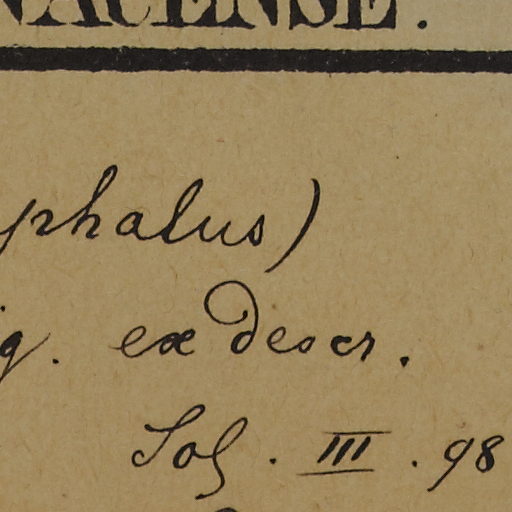 NACENSE.
phalus)
g. ex descr.
III. 98